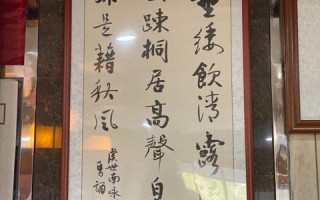 垂緌飲清露
踈桐居高聲自
是藉秋風
虞世南咏